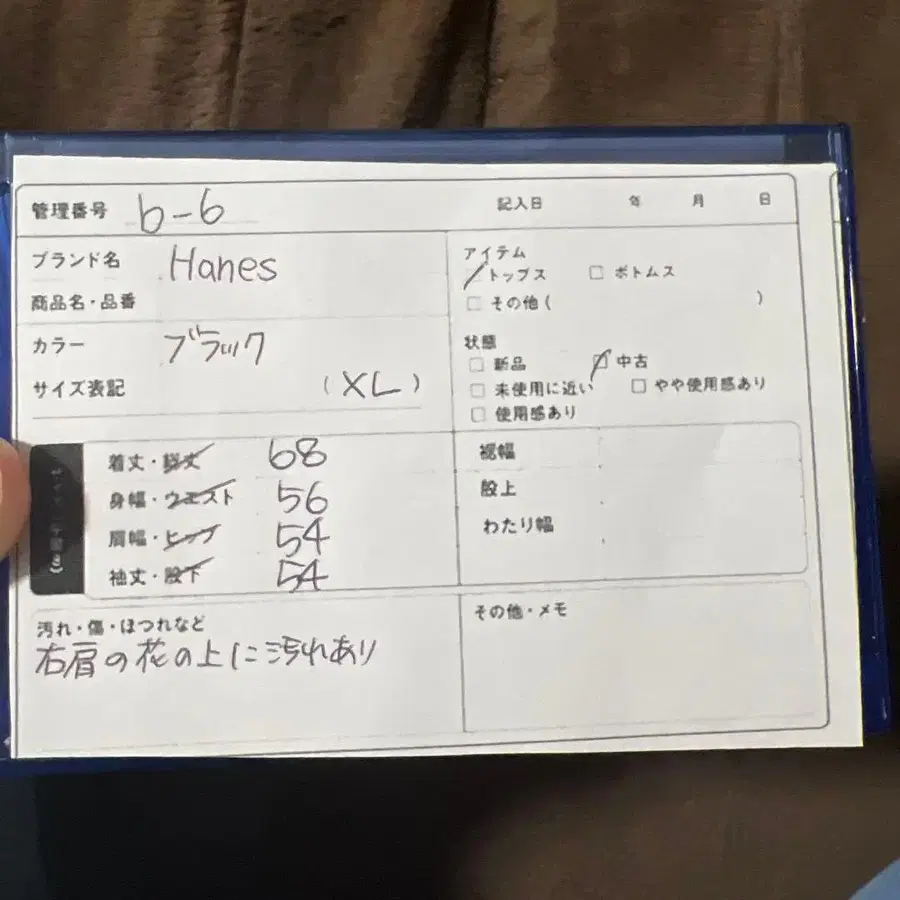 管理番号 b-6 記入日 年 月 日
ブランド名 Hanes
商品名・品番
カラー ブラック
サイズ表記 (XL)
アイテム
トップス □ ボトムス
□ その他 ( )
状態
□ 新品 □ 中古
□ 未使用に近い □ やや使用感あり
□ 使用感あり
着丈・総丈 68
身幅・ウエスト 56
肩幅・ヒップ 54
袖丈・股下 54
裾幅
股上
わたり幅
汚れ・傷・ほつれなど
右肩の花の上に汚れあり
その他・メモ